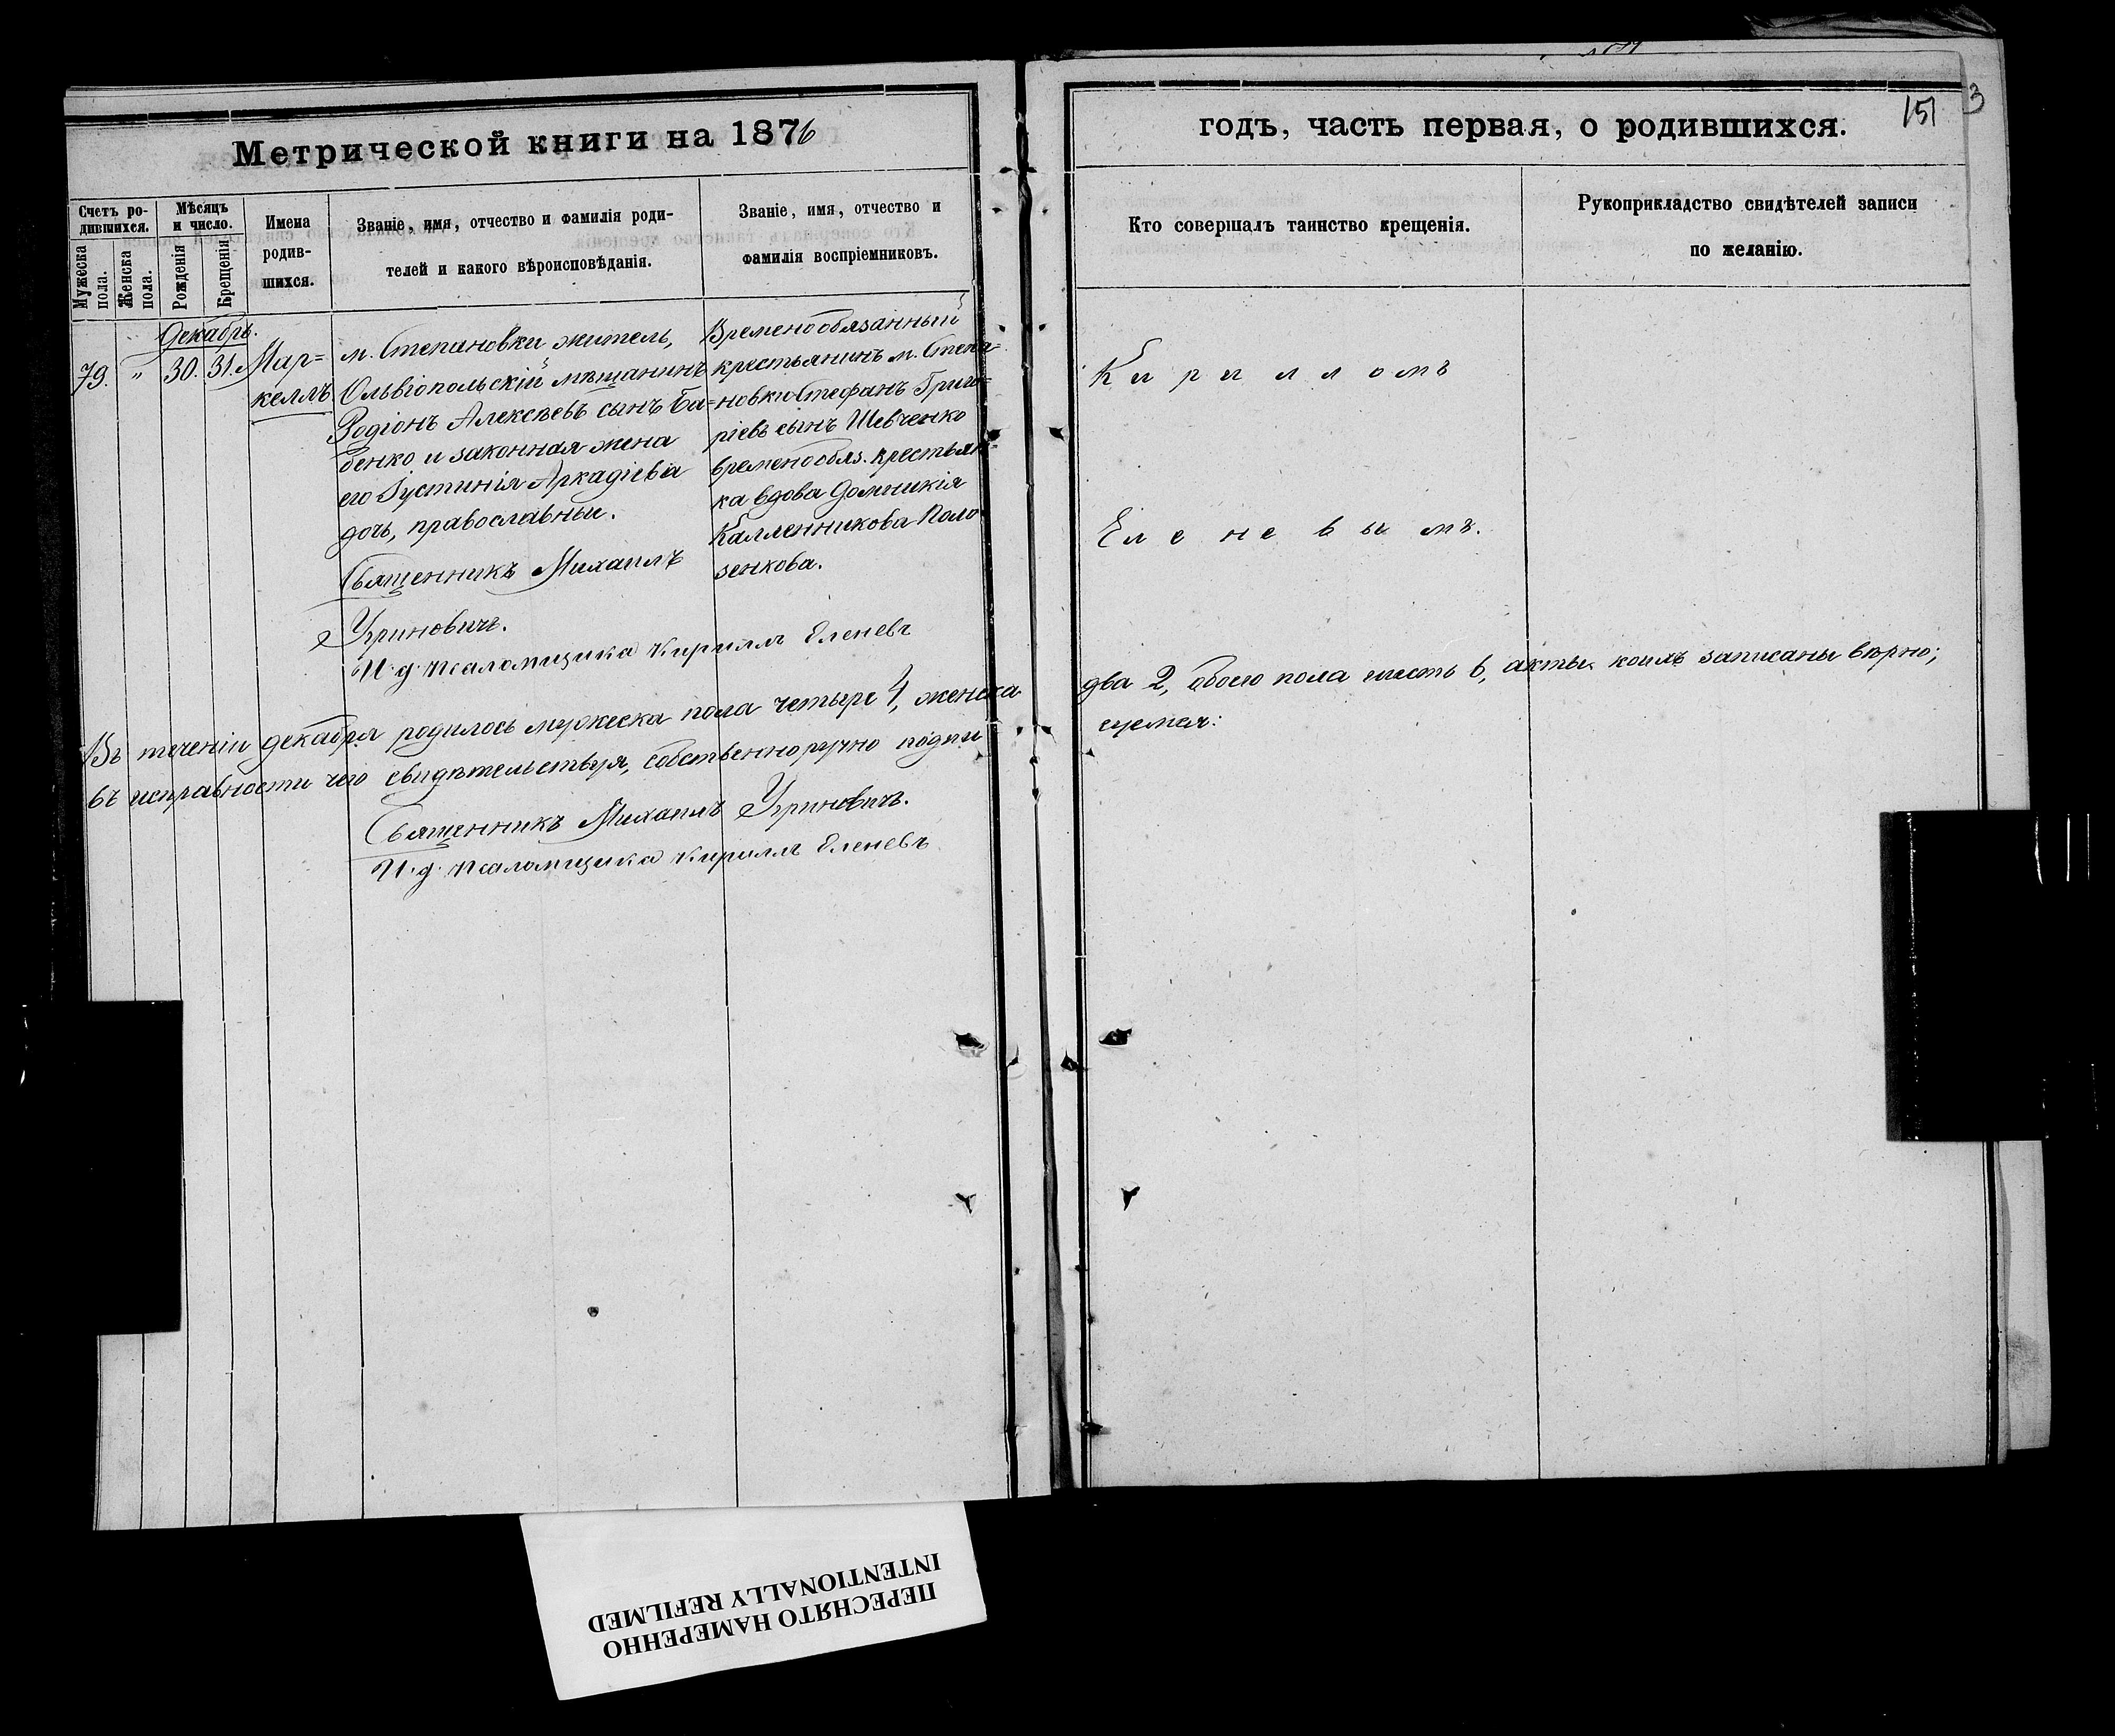 Метрической книги на 1876
годъ, часть первая, о родившихся.
151
3
Счетъ ро-
дившихся.
Мужеска
пола.
Женска
пола.
Мѣсяцъ
и число.
Рожденія
Крещенія
Имена
родив-
шихся.
Званіе, имя, отчество и фамилія роди-
телей и какого вѣроисповѣданія.
Званіе, имя, отчество и
фамилія воспріемниковъ.
Кто совершалъ таинство крещенія.
Рукоприкладство свидѣтелей записи
по желанію.
Декабрь.
79. " 30. 31.
Мар=
келлъ
м. Степановки житель,
Ольвіопольскій мѣщанинъ
Родіонъ Алексѣевъ сынъ Ба=
бенко и законная жена
его Іустинія Аркадіева
дочь, православные.
Священникъ Михаилъ
Угриновичъ.
И. д. псаломщика Кириллъ Еленевъ
Временообязанный
крестьянинъ м. Степа=
новки Стефанъ Григо=
ріевъ сынъ Шевченко
временообяз. крестьян=
ка вдова Домникія
Каллениикова Поло
зенкова.
Кирилломъ
Еленевымъ.
Въ теченіи декабря родилось мужеска пола четыре 4, женска
два 2, обоего пола шесть 6, акты коихъ записаны вѣрно;
въ исправности чего свидѣтельствуя, собственноручно подпи
суемся:
Священникъ Михаилъ Угриновичъ.
И. д. псаломщика Кириллъ Еленевъ
ПЕРЕСНЯТО НАМЕРЕННО
INTENTIONALLY REFILMED